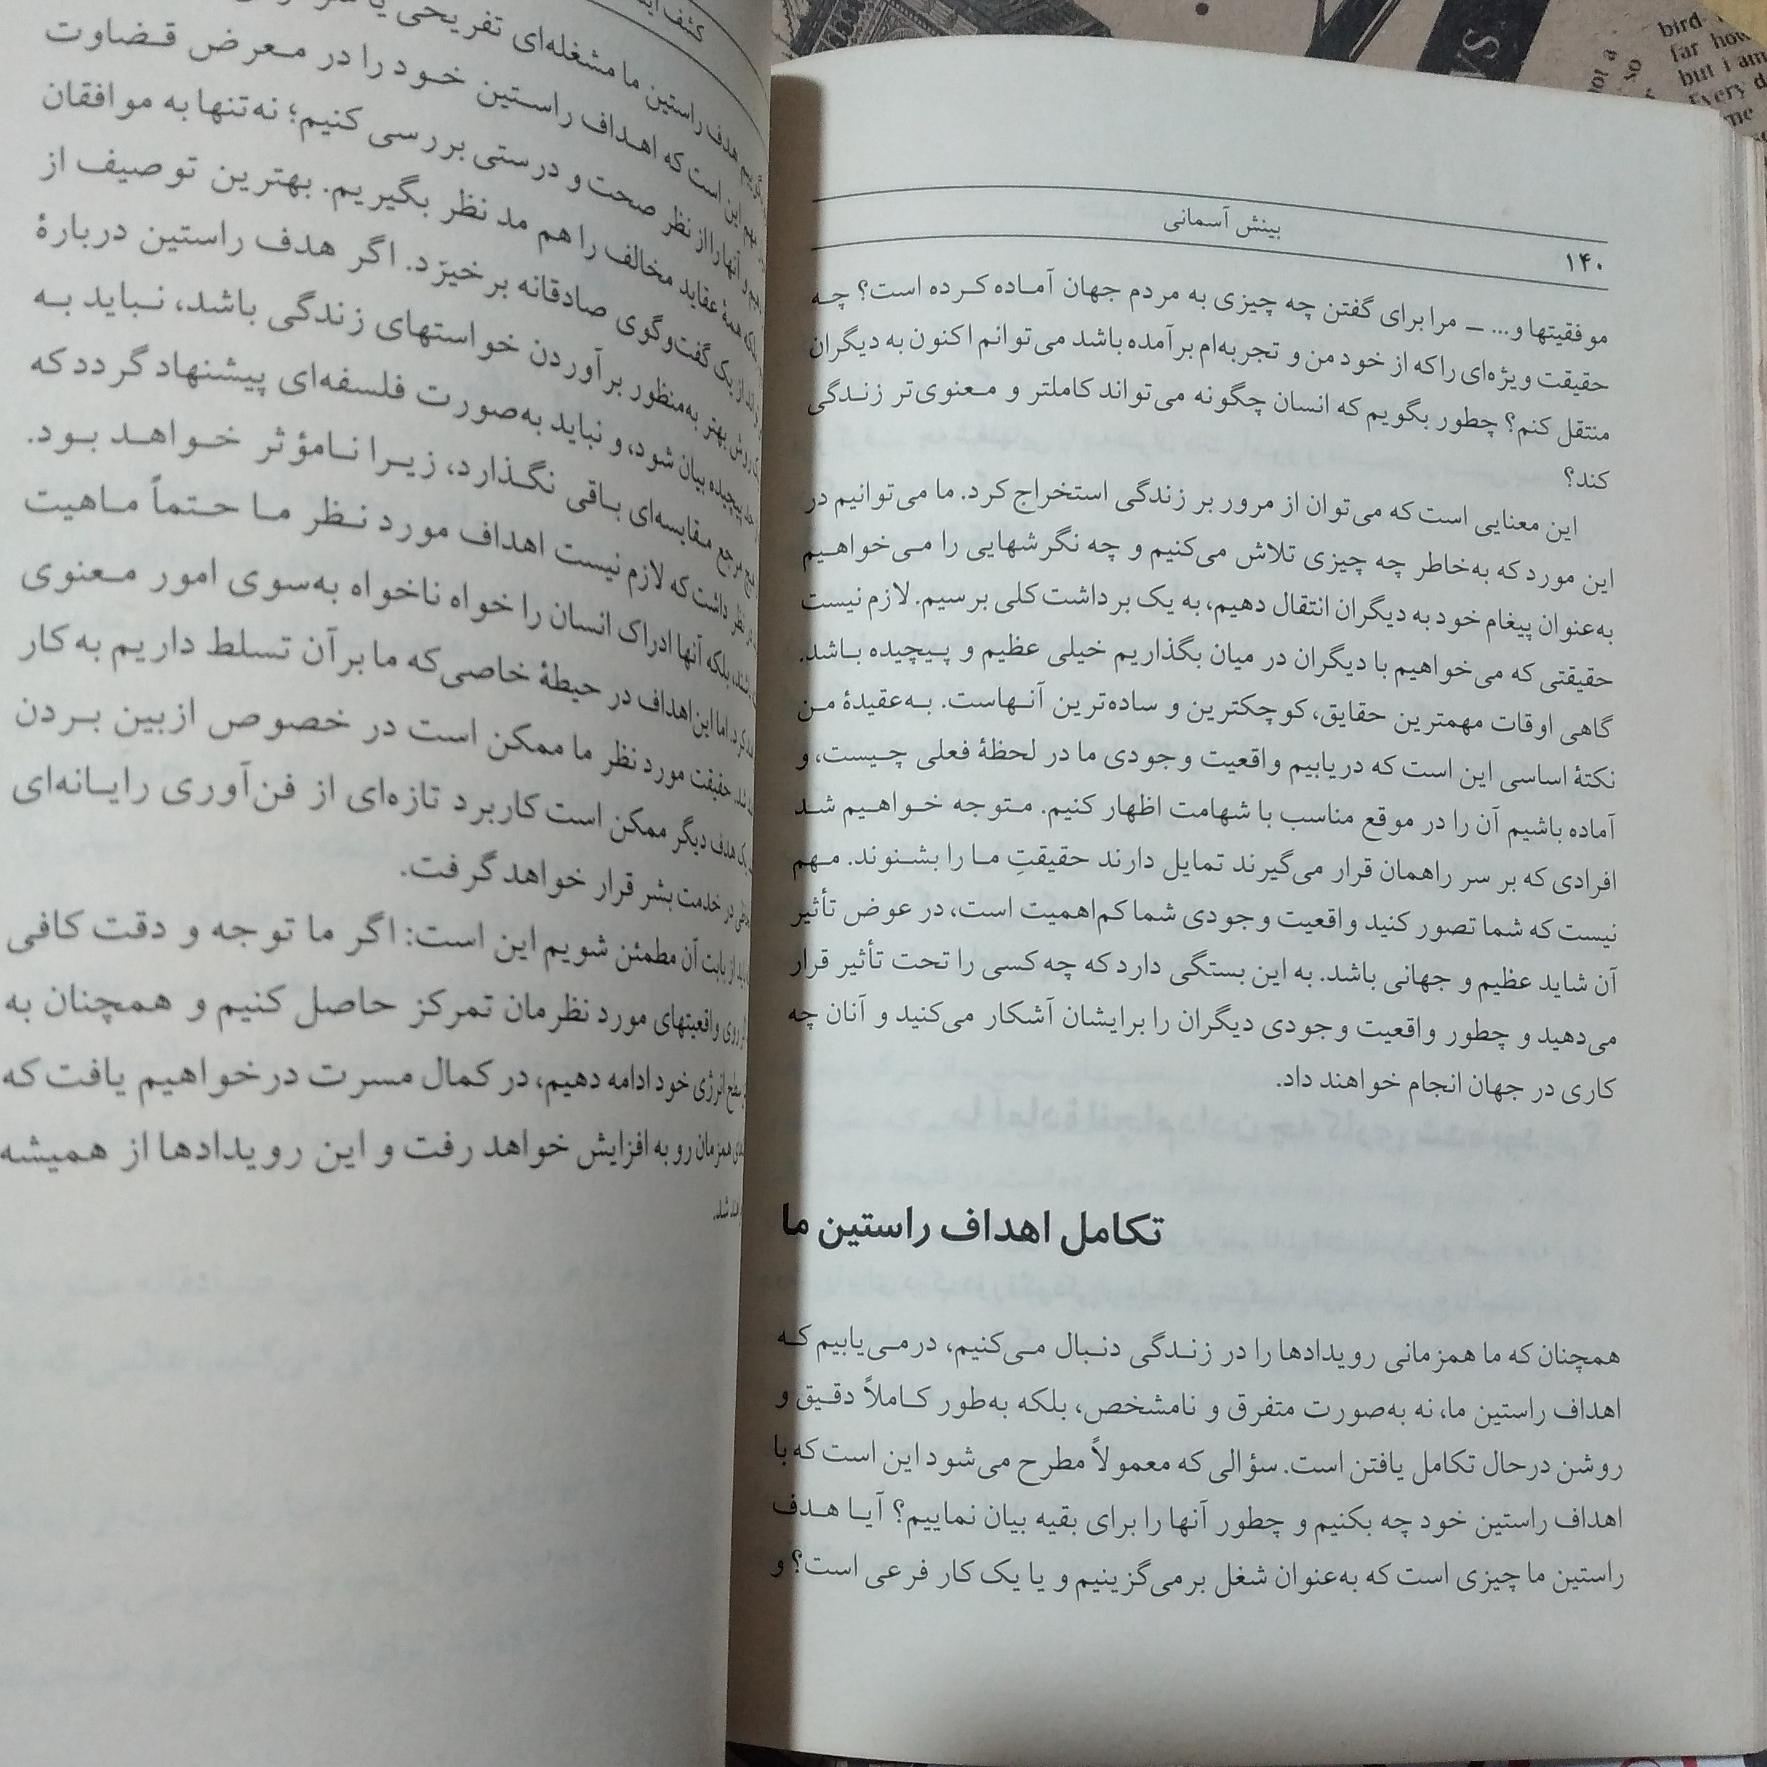 بینش آسمانی
۱۴۰
موفقیتها و... ــ مرا برای گفتن چه چیزی به مردم جهان آماده کرده است؟ چه
حقیقت ویژه‌ای را که از خود من و تجربه‌ام برآمده باشد می‌توانم اکنون به دیگران
منتقل کنم؟ چطور بگویم که انسان چگونه می‌تواند کاملتر و معنوی‌تر زندگی
کند؟
این معنایی است که می‌توان از مرور بر زندگی استخراج کرد. ما می‌توانیم در
این مورد که به‌خاطر چه چیزی تلاش می‌کنیم و چه نگرشهایی را می‌خواهیم
به‌عنوان پیغام خود به دیگران انتقال دهیم، به یک برداشت کلی برسیم. لازم نیست
حقیقتی که می‌خواهیم با دیگران در میان بگذاریم خیلی عظیم و پیچیده باشد.
گاهی اوقات مهمترین حقایق، کوچکترین و ساده‌ترین آنهاست. به‌عقیدهٔ من
نکتهٔ اساسی این است که دریابیم واقعیت وجودی ما در لحظهٔ فعلی چیست، و
آماده باشیم آن را در موقع مناسب با شهامت اظهار کنیم. متوجه خواهیم شد
افرادی که بر سر راهمان قرار می‌گیرند تمایل دارند حقیقتِ ما را بشنوند. مهم
نیست که شما تصور کنید واقعیت وجودی شما کم‌اهمیت است، در عوض تأثیر
آن شاید عظیم و جهانی باشد. به این بستگی دارد که چه کسی را تحت تأثیر قرار
می‌دهید و چطور واقعیت وجودی دیگران را برایشان آشکار می‌کنید و آنان چه
کاری در جهان انجام خواهند داد.
تکامل اهداف راستین ما
همچنان که ما همزمانی رویدادها را در زندگی دنبال می‌کنیم، درمی‌یابیم که
اهداف راستین ما، نه به‌صورت متفرق و نامشخص، بلکه به‌طور کاملاً دقیق و
روشن درحال تکامل یافتن است. سؤالی که معمولاً مطرح می‌شود این است که با
اهداف راستین خود چه بکنیم و چطور آنها را برای بقیه بیان نماییم؟ آیا هدف
راستین ما چیزی است که به‌عنوان شغل برمی‌گزینیم و یا یک کار فرعی است؟ و
کشف
هدف راستین ما مشغله‌ای تفریحی یا
این است که اهداف راستین خود را در معرض قضاوت
آنها را از نظر صحت و درستی بررسی کنیم؛ نه‌تنها به موافقان
همهٔ عقاید مخالف را هم مد نظر بگیریم. بهترین توصیف از
از یک گفت‌وگوی صادقانه برخیزد. اگر هدف راستین دربارهٔ
روش بهتر به‌منظور برآوردن خواستهای زندگی باشد، نباید به
پیچیده بیان شود، و نباید به‌صورت فلسفه‌ای پیشنهاد گردد که
مرجع مقایسه‌ای باقی نگذارد، زیرا نامؤثر خواهد بود.
نظر داشت که لازم نیست اهداف مورد نظر ما حتماً ماهیت
باشند، بلکه آنها ادراک انسان را خواه ناخواه به‌سوی امور معنوی
کرد. اما این اهداف در حیطهٔ خاصی که ما بر آن تسلط داریم به کار
شد. حقیقت مورد نظر ما ممکن است در خصوص ازبین بردن
یک هدف دیگر ممکن است کاربرد تازه‌ای از فن‌آوری رایانه‌ای
در خدمت بشر قرار خواهد گرفت.
از بابت آن مطمئن شویم این است: اگر ما توجه و دقت کافی
روی واقعیتهای مورد نظرمان تمرکز حاصل کنیم و همچنان به
سطح انرژی خود ادامه دهیم، در کمال مسرت درخواهیم یافت که
همزمان رو به افزایش خواهد رفت و این رویدادها از همیشه
شد.